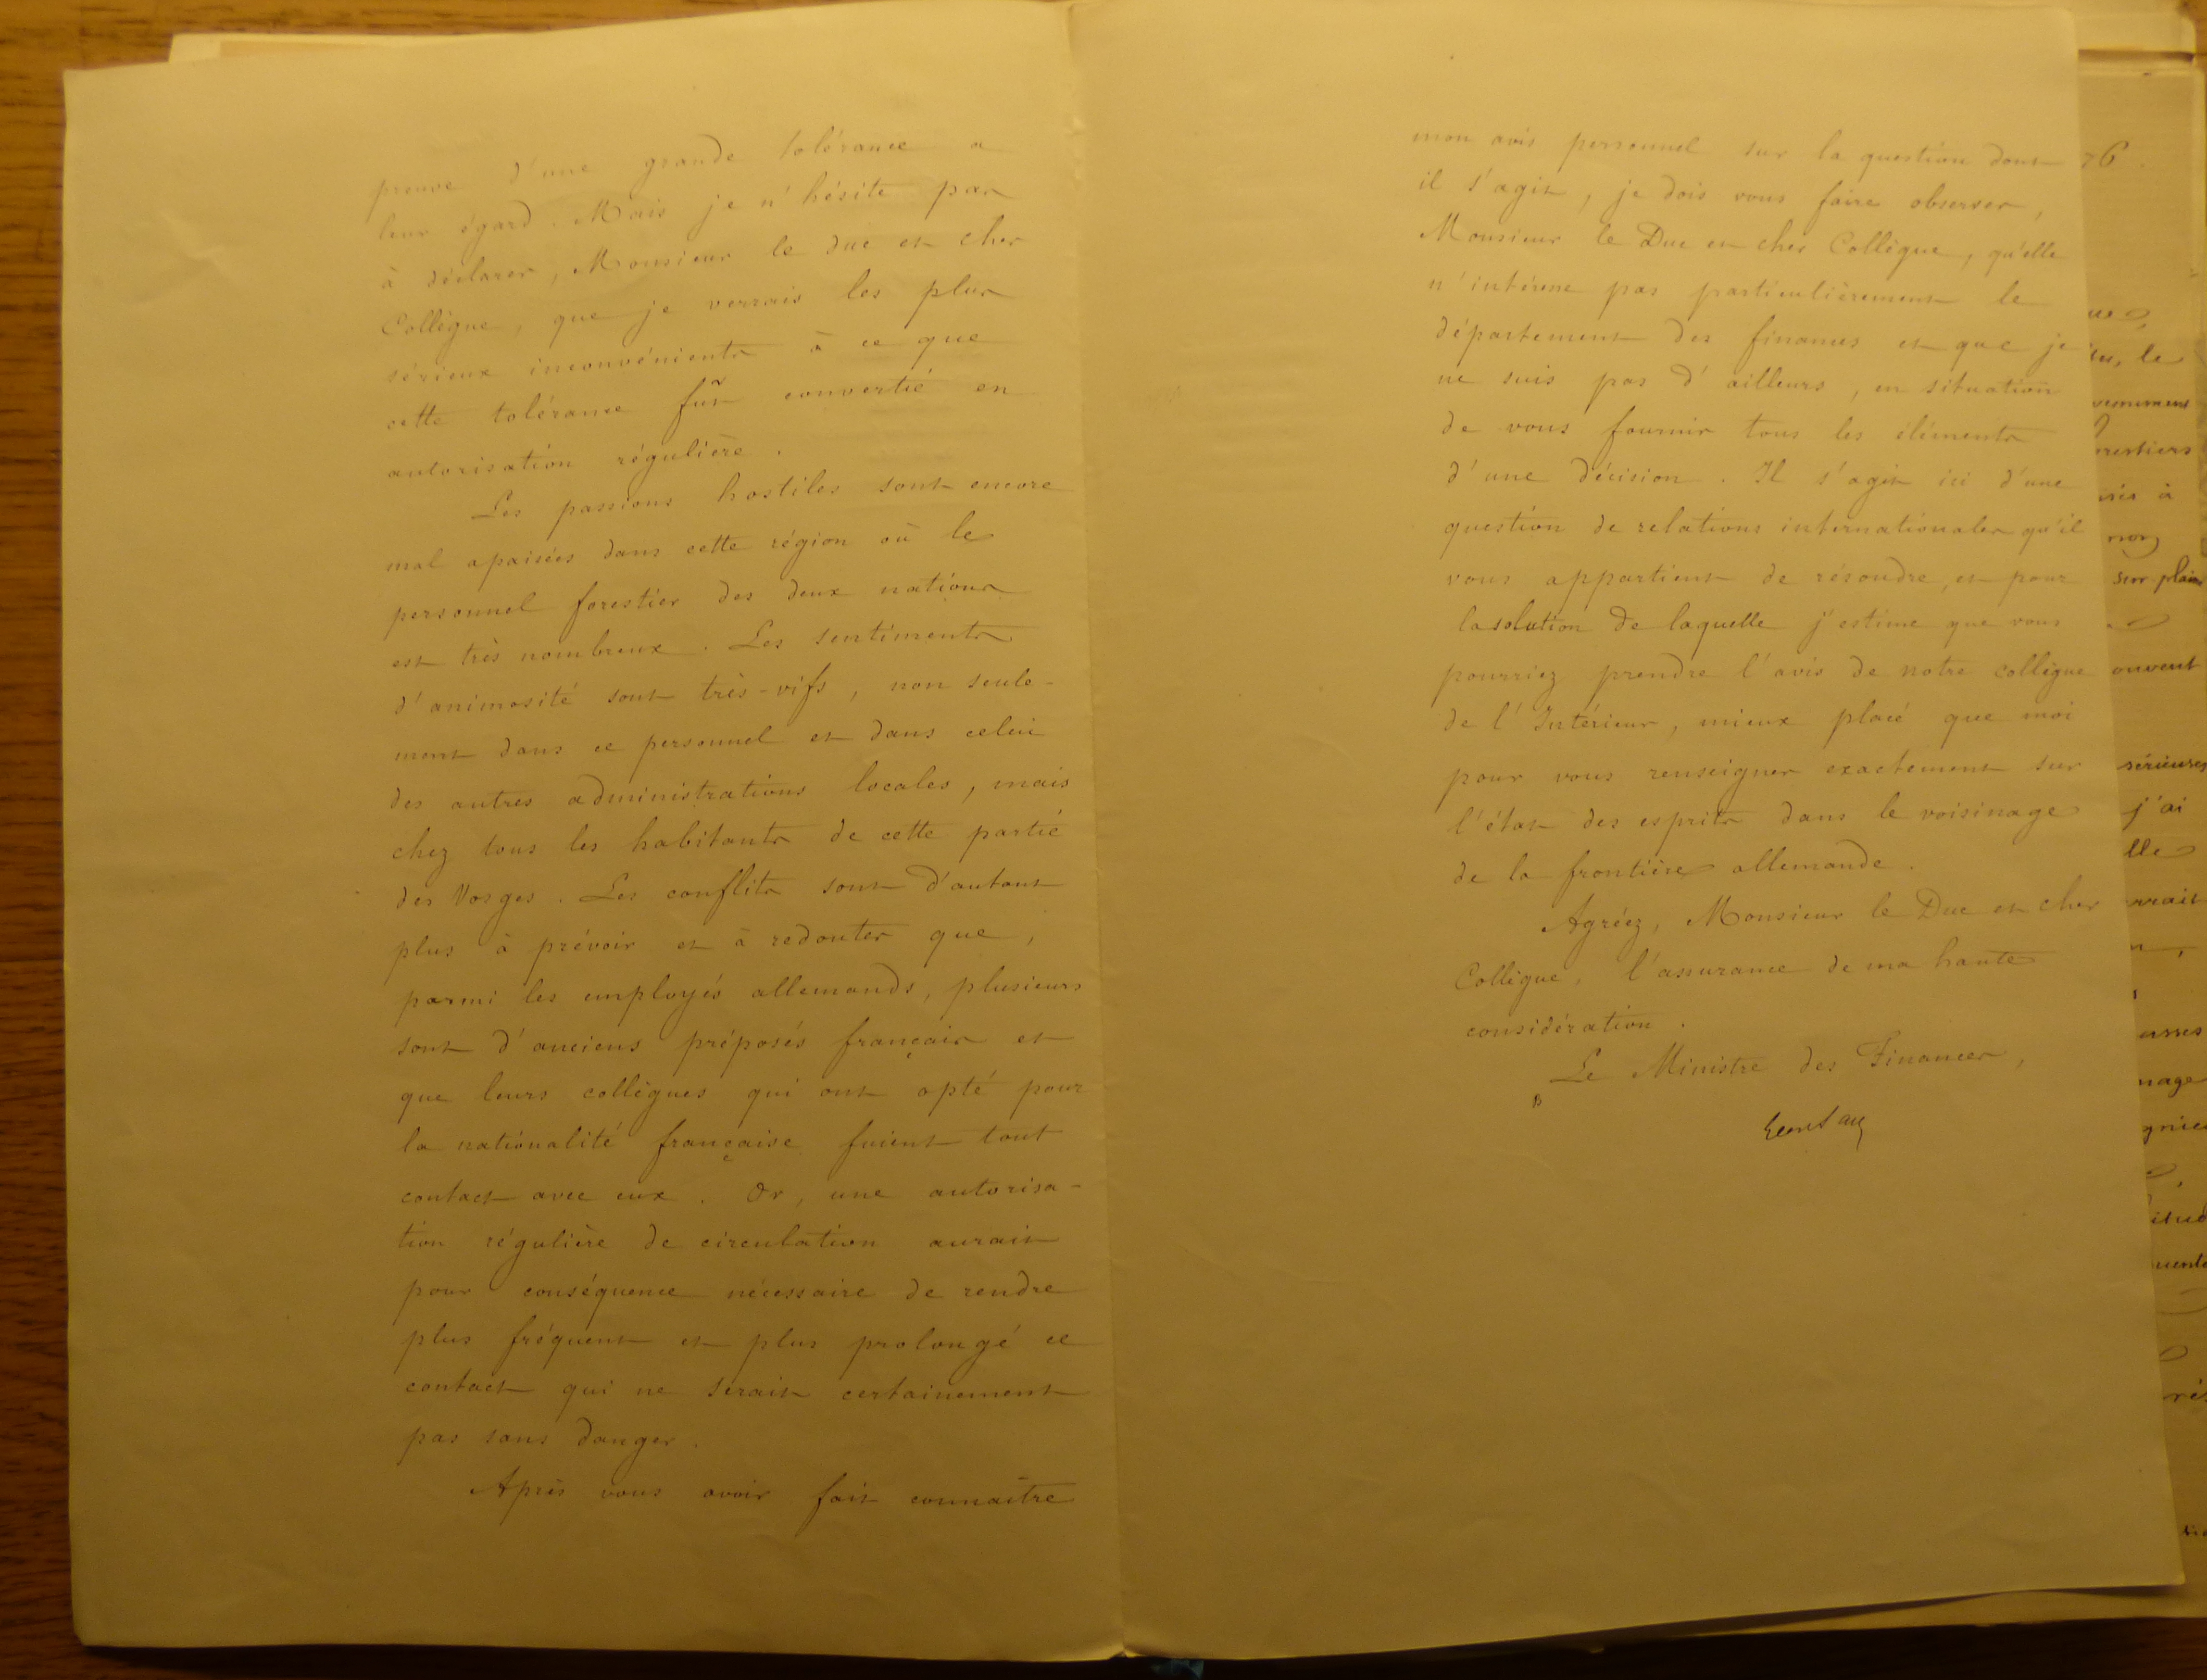 preuve d'une grande tolérance a
leur égard. Mais je n'hésite pas
à déclarer, Monsieur le duc et cher
Collègue, que je verrais les plus
sérieux inconvénients à ce que
cette tolérance fût convertie en
autorisation régulière.
Les passions hostiles sont encore
mal apaisées dans cette région où le
personnel forestier des deux nations
est très nombreux. Les sentiments
d'animosité sont très-vifs, non seule-
ment dans ce personnel et dans celui
des autres administrations locales, mais
chez tous les habitants de cette partie
des Vosges. Les conflits sont d'autant
plus à prévoir et à redouter que,
parmi les employés allemands, plusieurs
sont d'anciens préposés français et
que leurs collègues qui ont opté pour
la nationalité française fuient tout
contact avec eux. Or, une autorisa-
tion régulière de circulation aurait
pour conséquence nécessaire de rendre
plus fréquent et plus prolongé ce
contact qui ne serait certainement
pas sans danger.
Après vous avoir fait connaître
mon avis personnel sur la question dont
il s'agit, je dois vous faire observer,
Monsieur le Duc et cher Collègue, qu'elle
n'intéresse pas particulièrement le
département des finances et que je
ne suis pas d'ailleurs, en situation
de vous fournir tous les éléments
d'une décision. Il s'agit ici d'une
question de relations internationales qu'il
vous appartient de résoudre, et pour
la solution de laquelle j'estime que vous
pourriez prendre l'avis de notre collègue
de l'Intérieur, mieux placé que moi
pour vous renseigner exactement sur
l'état des esprits dans le voisinage
de la frontière allemande.
Agréez, Monsieur le Duc et cher
Collègue, l'assurance de ma haute
considération.
Le Ministre des Finances,
76.
le
à
sur plain
sérieuses
j'ai